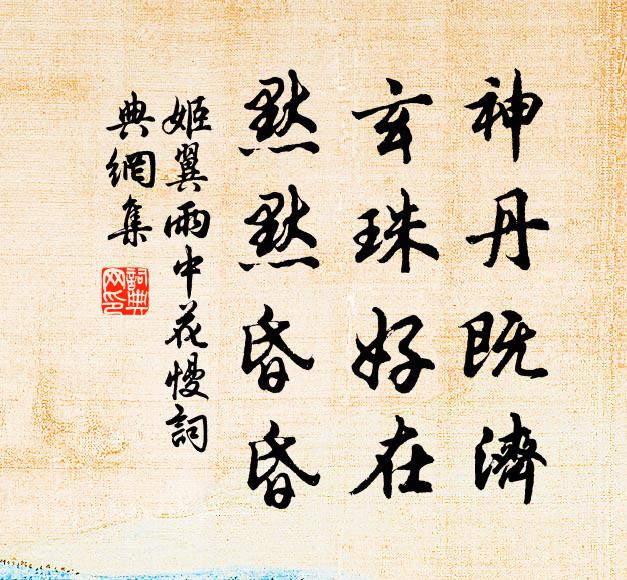 神丹既濟
玄珠好在
默默昏昏
姬翼雨中花慢詞
典網集
詞典網印